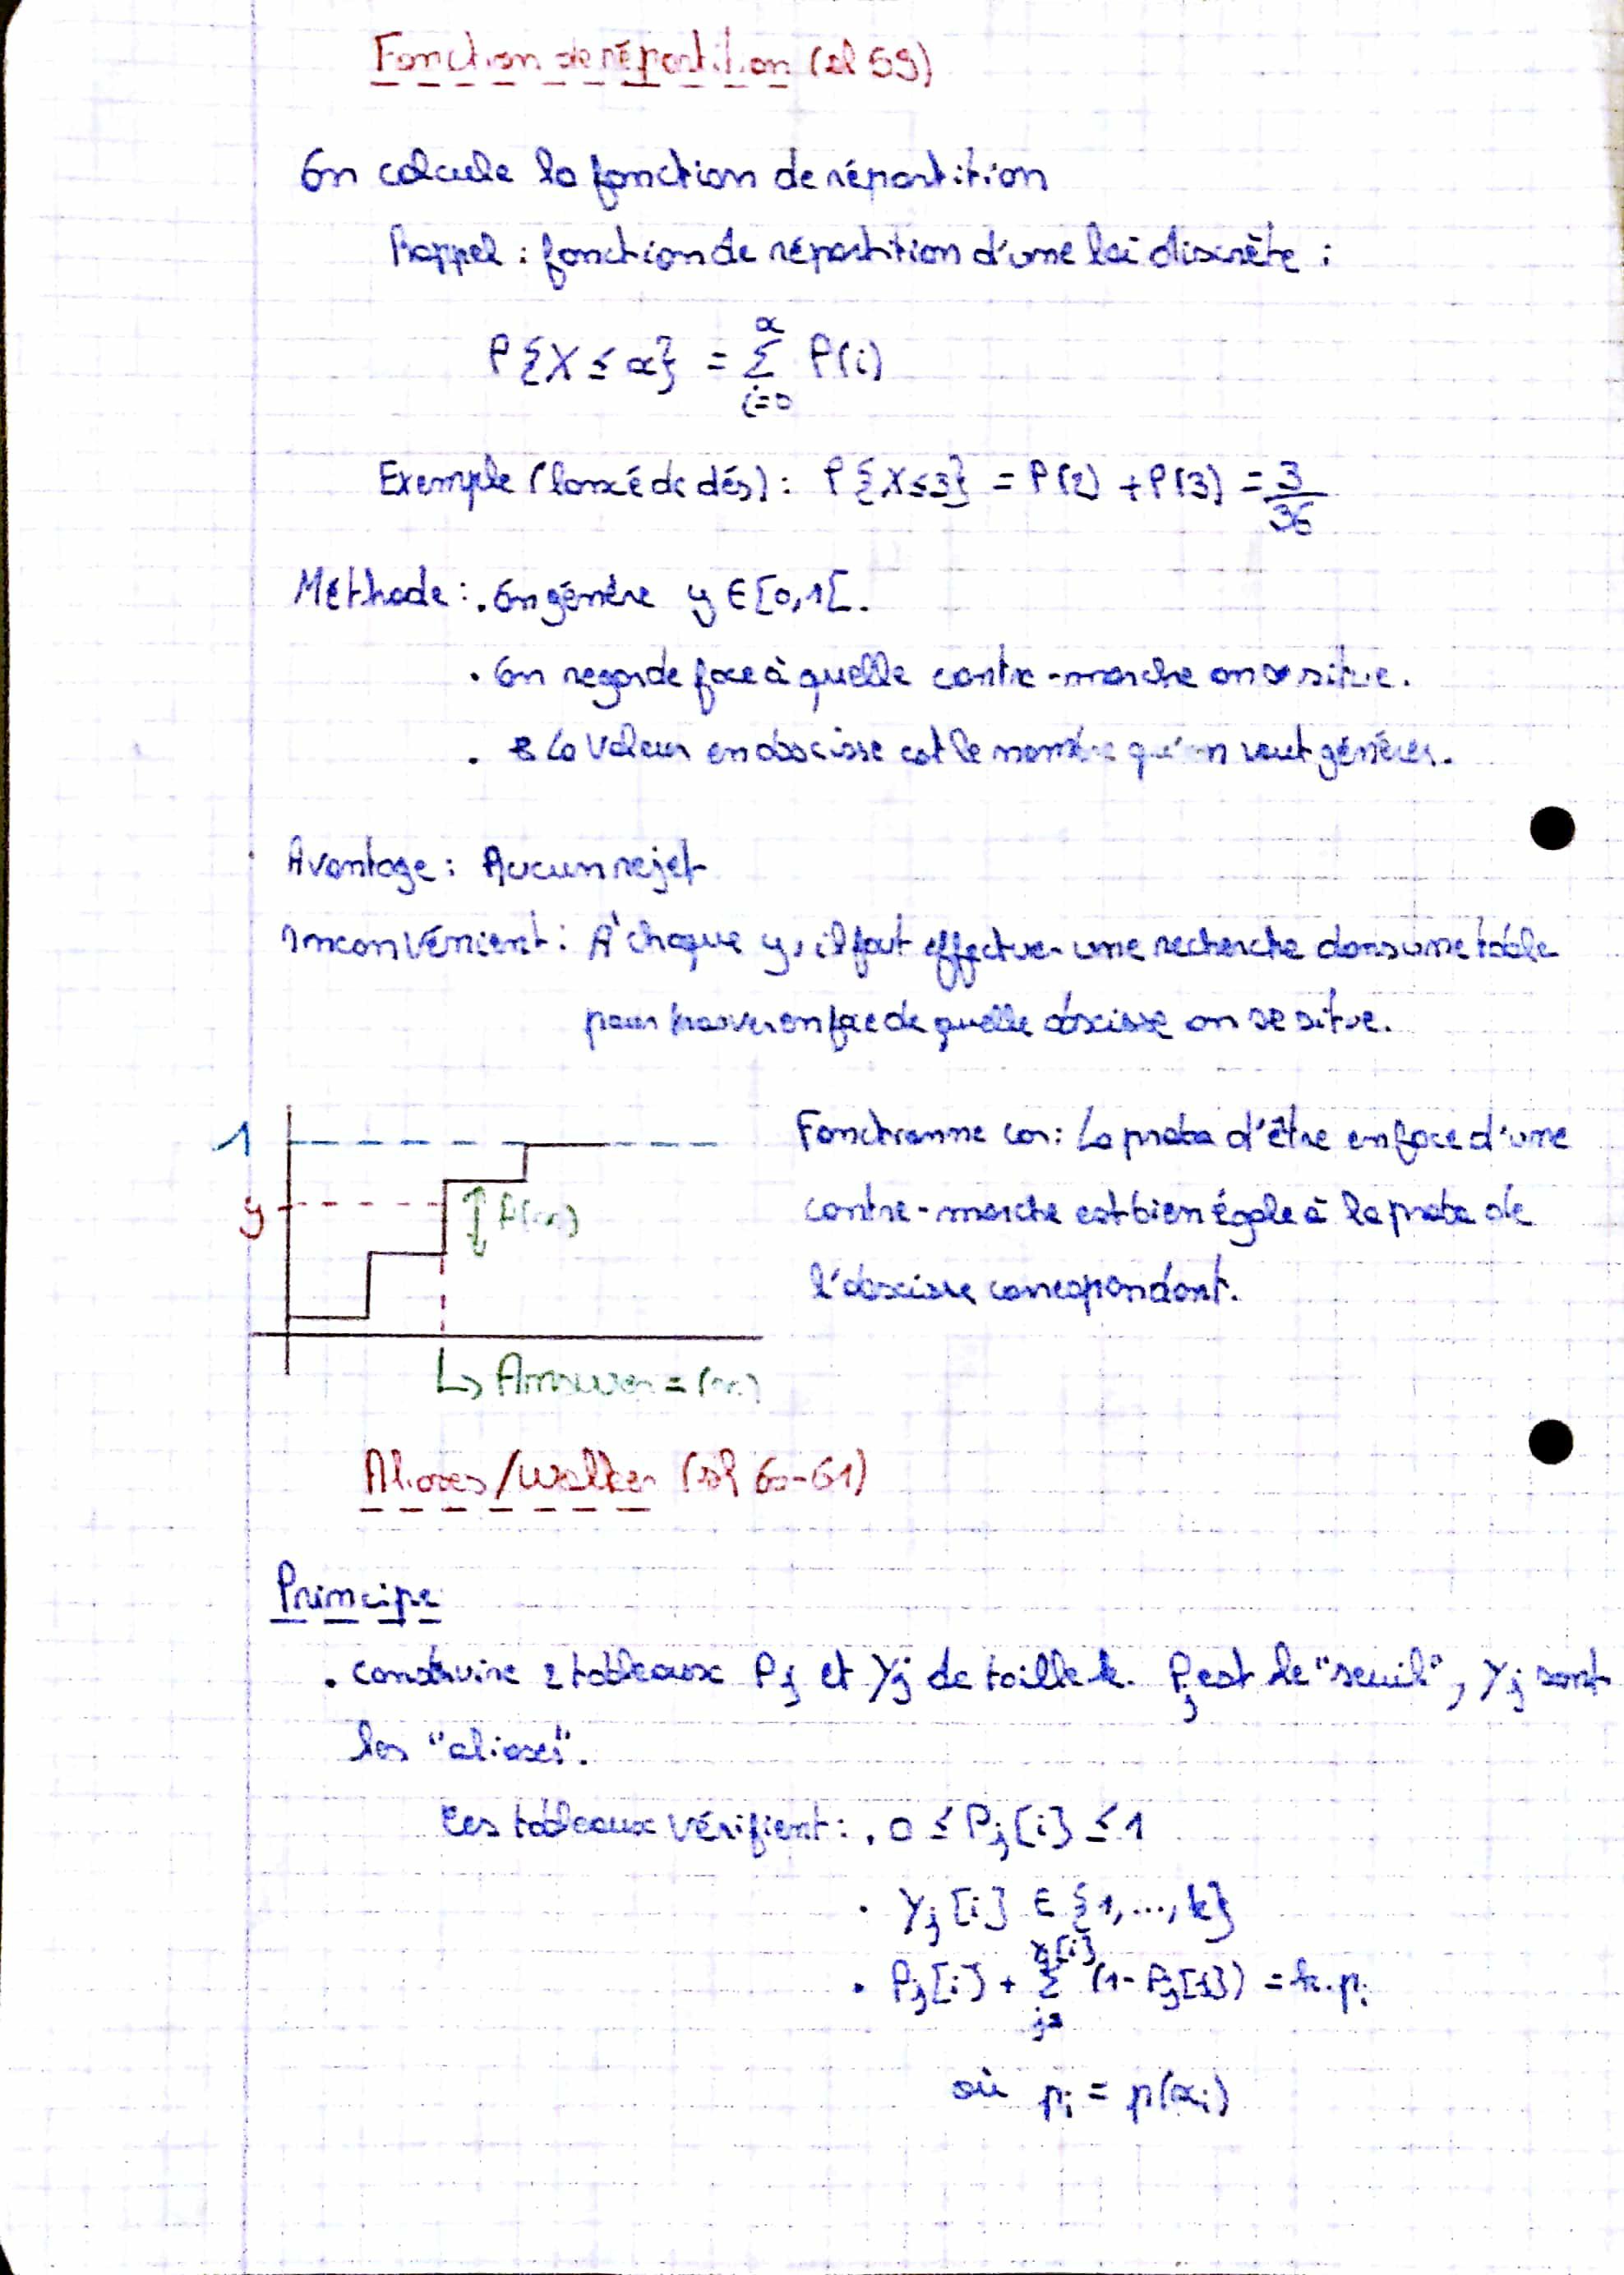 Fonction de répartition (sl 59)
On calcule la fonction de répartition
Rappel : fonction de répartition d'une loi discrète :
P{X ≤ x} = Σ_{i=0}^{x} P(i)
Exemple (lancé de dés) : P{X≤3} = P(2) + P(3) = 3/36
Méthode : . On génère y ∈ [0,1[.
. On regarde face à quelle contre-marche on se situe.
. La valeur en abscisse est le nombre qu'on veut générer.
Avantage : Aucun rejet
Inconvénient : A chaque y, il faut effectuer une recherche dans une table
pour trouver en face de quelle abscisse on se situe.
1
y
Fonctionne car : La proba d'être en face d'une
contre-marche est bien égale à la proba de
l'abscisse correspondant.
↳ Answer =
Aliases/Walker (sl 60-61)
Principe
. construire 2 tableaux Pj et Yj de taille k. Pj est le "seuil", Yj sont
les "aliases".
Ces tableaux vérifient : . 0 ≤ Pj[i] ≤ 1
. Yj[i] ∈ {1,...,k}
. Pj[i] + Σ (1 - Pj[j]) = k.pi
où pi = p(xi)